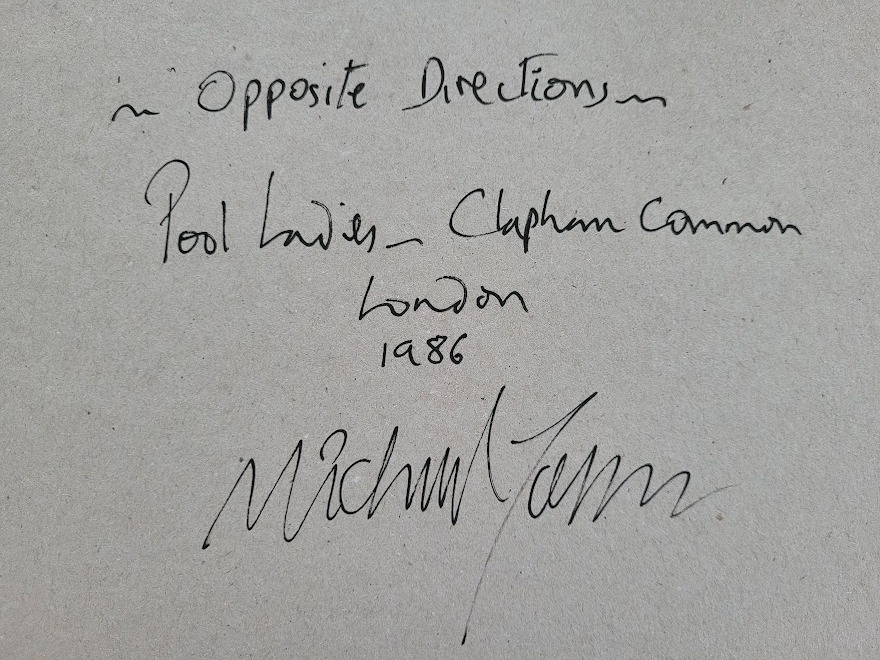 ~ Opposite Directions ~
Pool Ladies - Clapham Common
London
1986
Michael